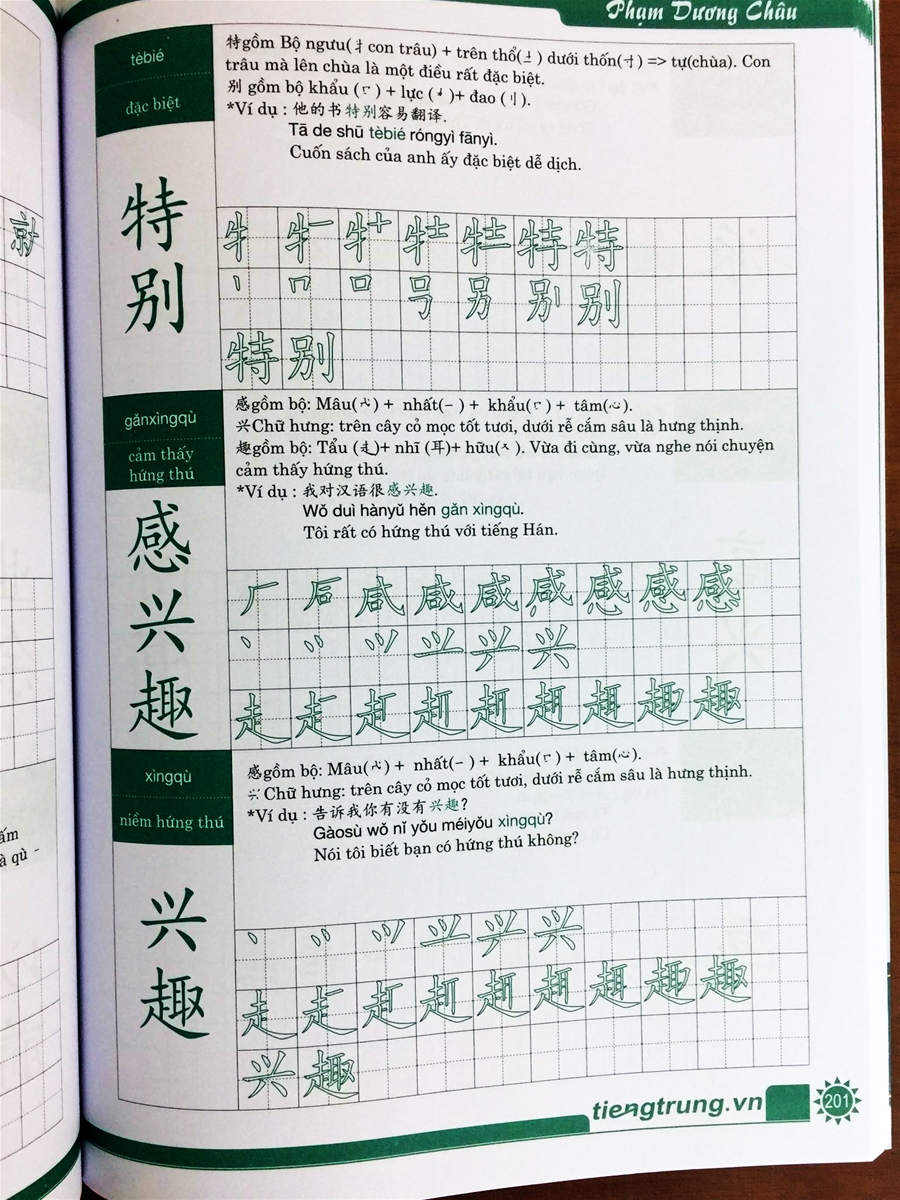 Phạm Dương Châu
tèbié
đặc biệt
特别
特gồm Bộ ngưu(牜con trâu) + trên thổ(土) dưới thốn(寸) => tự(chùa). Con
trâu mà lên chùa là một điều rất đặc biệt.
别 gồm bộ khẩu (口) + lực (力)+ đao (刂).
*Ví dụ : 他的书特别容易翻译.
Tā de shū tèbié róngyì fānyì.
Cuốn sách của anh ấy đặc biệt dễ dịch.
特别
gǎnxìngqù
cảm thấy
hứng thú
感兴趣
感gồm bộ: Mâu(戈) + nhất(一) + khẩu(口) + tâm(心).
兴Chữ hưng: trên cây cỏ mọc tốt tươi, dưới rễ cắm sâu là hưng thịnh.
趣gồm bộ: Tẩu (走)+ nhĩ (耳)+ hữu(又). Vừa đi cùng, vừa nghe nói chuyện
cảm thấy hứng thú.
*Ví dụ : 我对汉语很感兴趣.
Wǒ duì hànyǔ hěn gǎn xìngqù.
Tôi rất có hứng thú với tiếng Hán.
xìngqù
niềm hứng thú
兴趣
感gồm bộ: Mâu(戈) + nhất(一) + khẩu(口) + tâm(心).
Chữ hưng: trên cây cỏ mọc tốt tươi, dưới rễ cắm sâu là hưng thịnh.
*Ví dụ : 告诉我你有没有兴趣?
Gàosù wǒ nǐ yǒu méiyǒu xìngqù?
Nói tôi biết bạn có hứng thú không?
兴趣
tiengtrung.vn
201